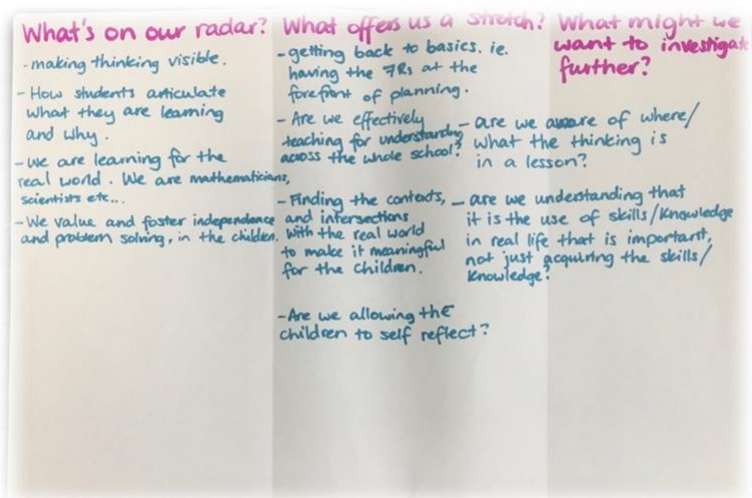 What's on our radar?
- making thinking visible.
- How students articulate
what they are learning
and why.
- we are learning for the
real world. We are mathematicians,
scientists etc...
- We value and foster independence
and problem solving, in the children.
What offers us a stretch?
- getting back to basics. ie.
having the 7Rs at the
forefront of planning.
- Are we effectively
teaching for understanding
across the whole school?
- Finding the contexts,
and intersections
with the real world
to make it meaningful
for the children.
- Are we allowing the
children to self reflect?
What might we
want to investigate
further?
- are we aware of where/
what the thinking is
in a lesson?
- are we understanding that
it is the use of skills/knowledge
in real life that is important,
not just acquiring the skills/
knowledge?